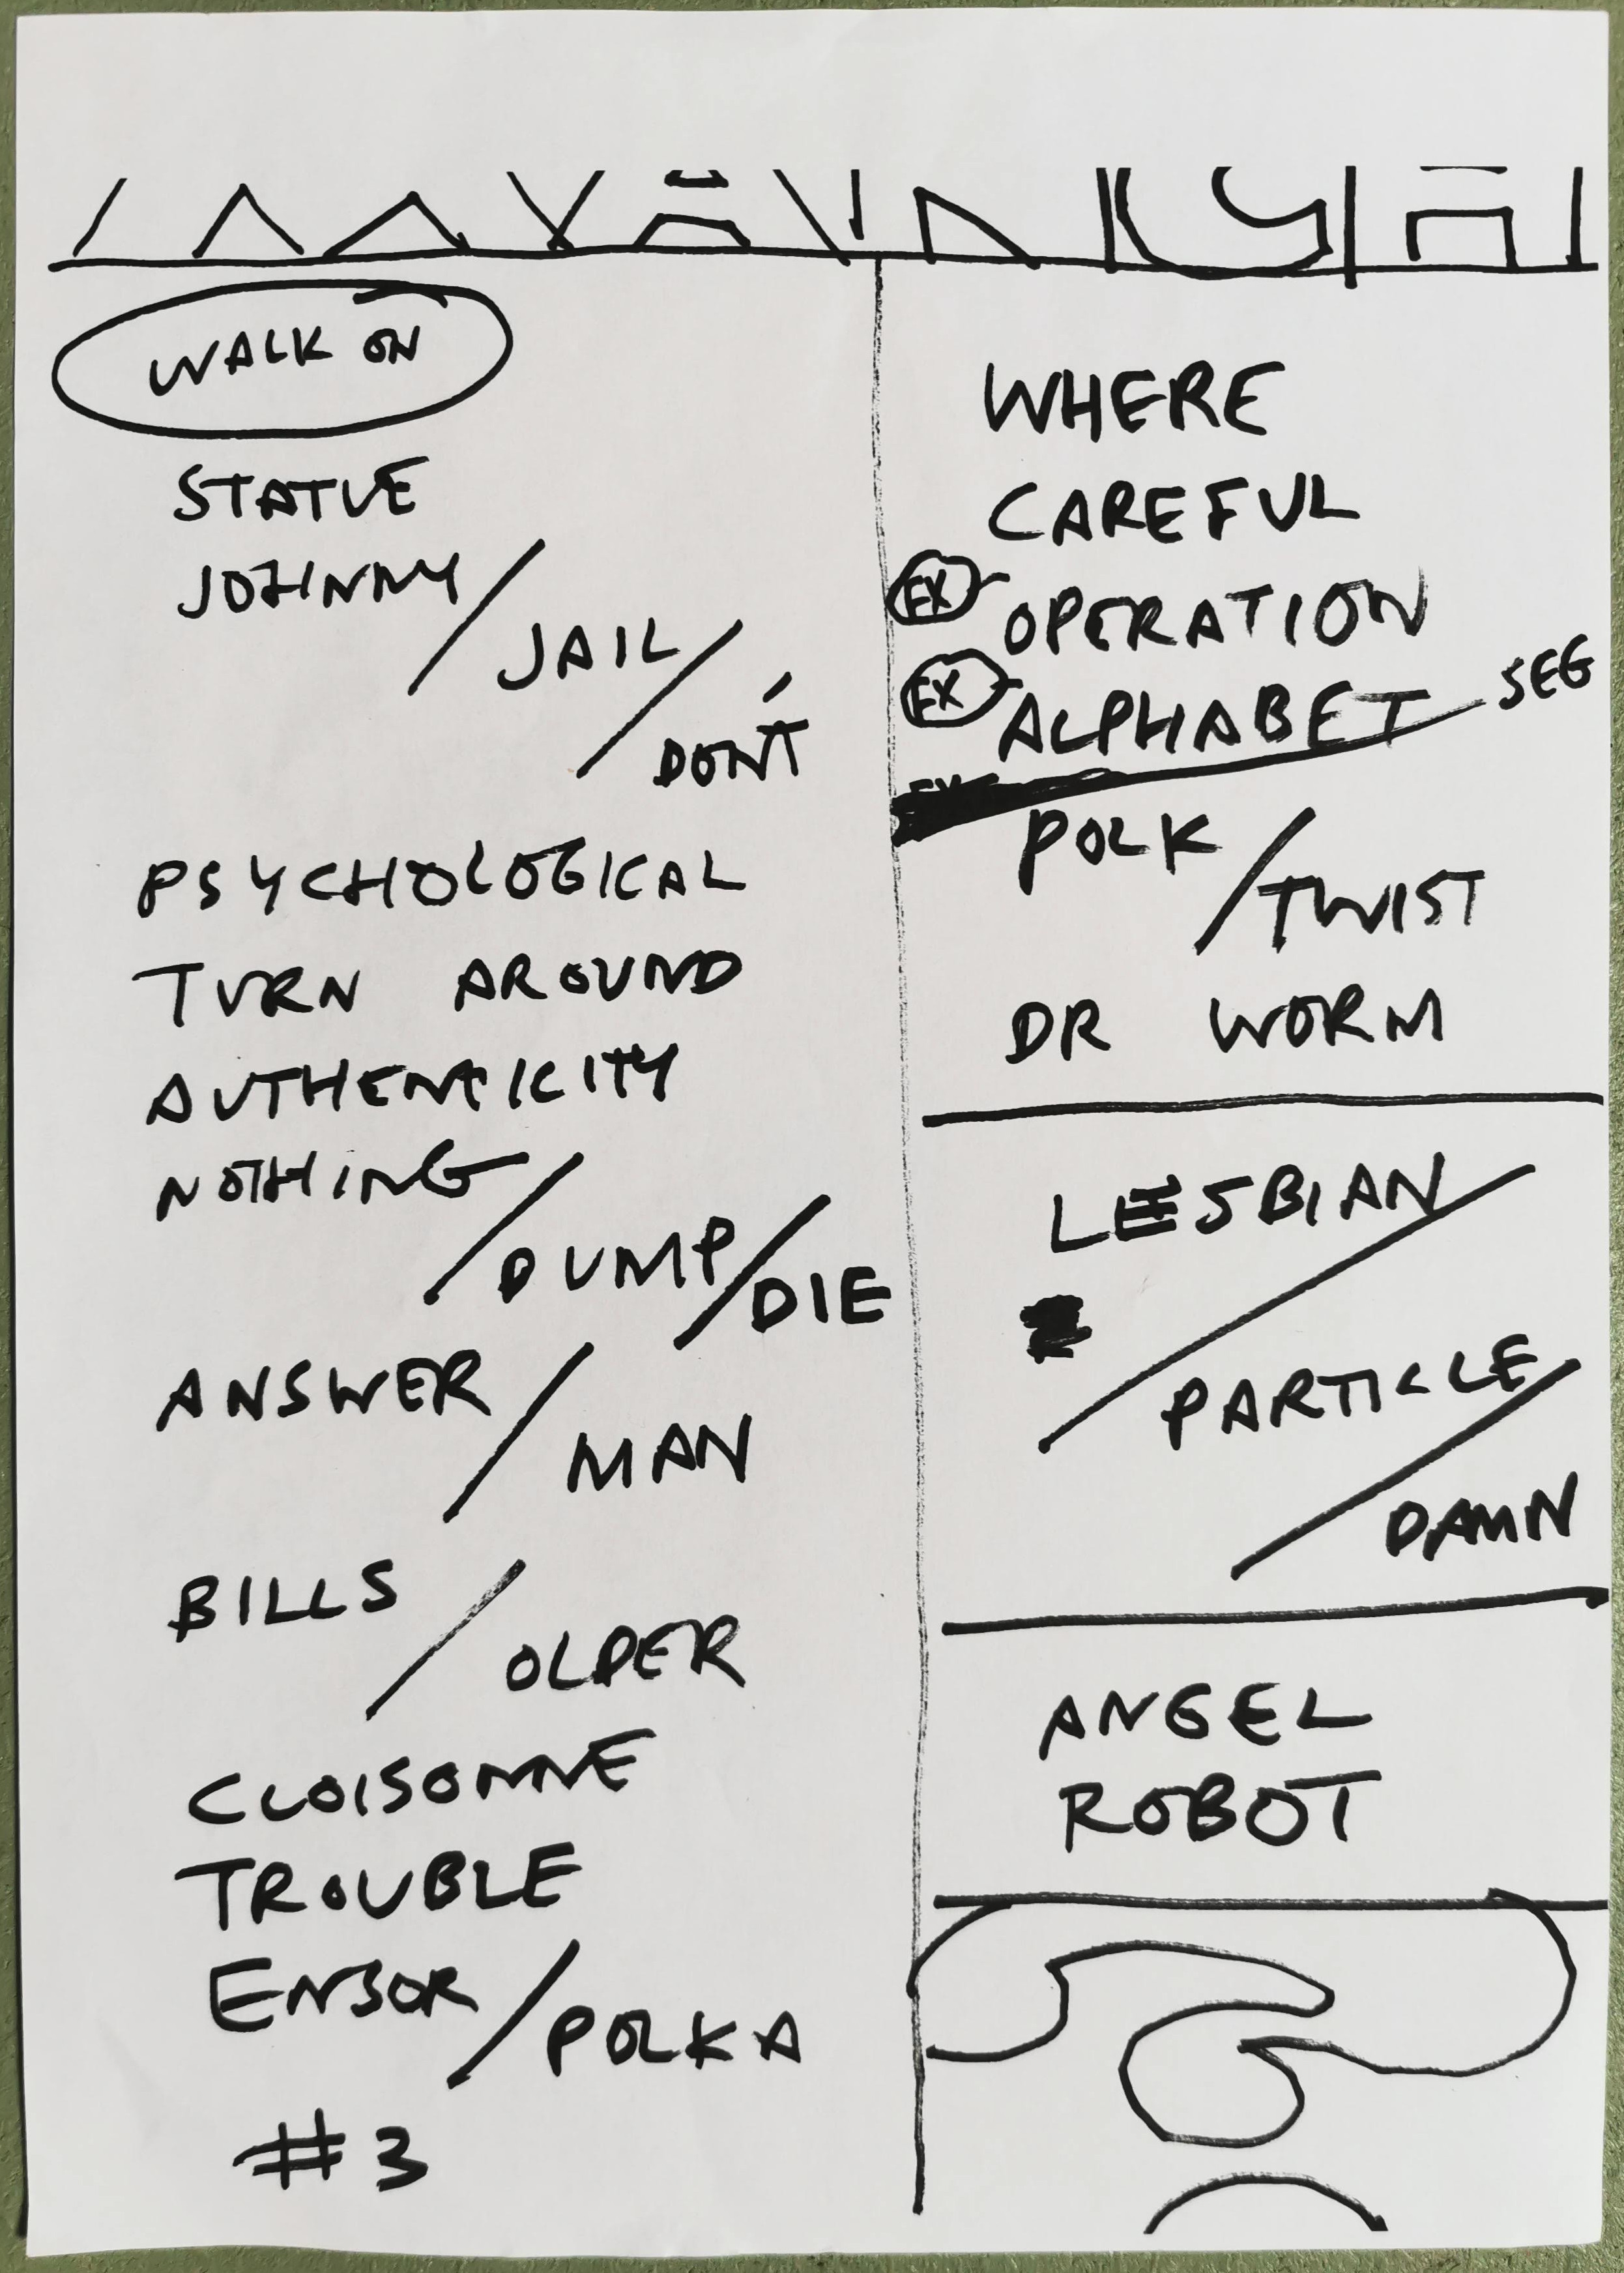 WALK ON
STATUE
JOHNNY /
JAIL /
DON'T
PSYCHOLOGICAL
TURN AROUND
AUTHENTICITY
NOTHING /
DUMP / DIE
ANSWER /
MAN
BILLS /
OLDER
CLOISONNE
TROUBLE
ENSOR /
POLKA
#3
WHERE
CAREFUL
EX OPERATION
EX ALPHABET SEG
POLK /
TWIST
DR WORM
LESBIAN /
PARTICLE /
DAMN
ANGEL
ROBOT